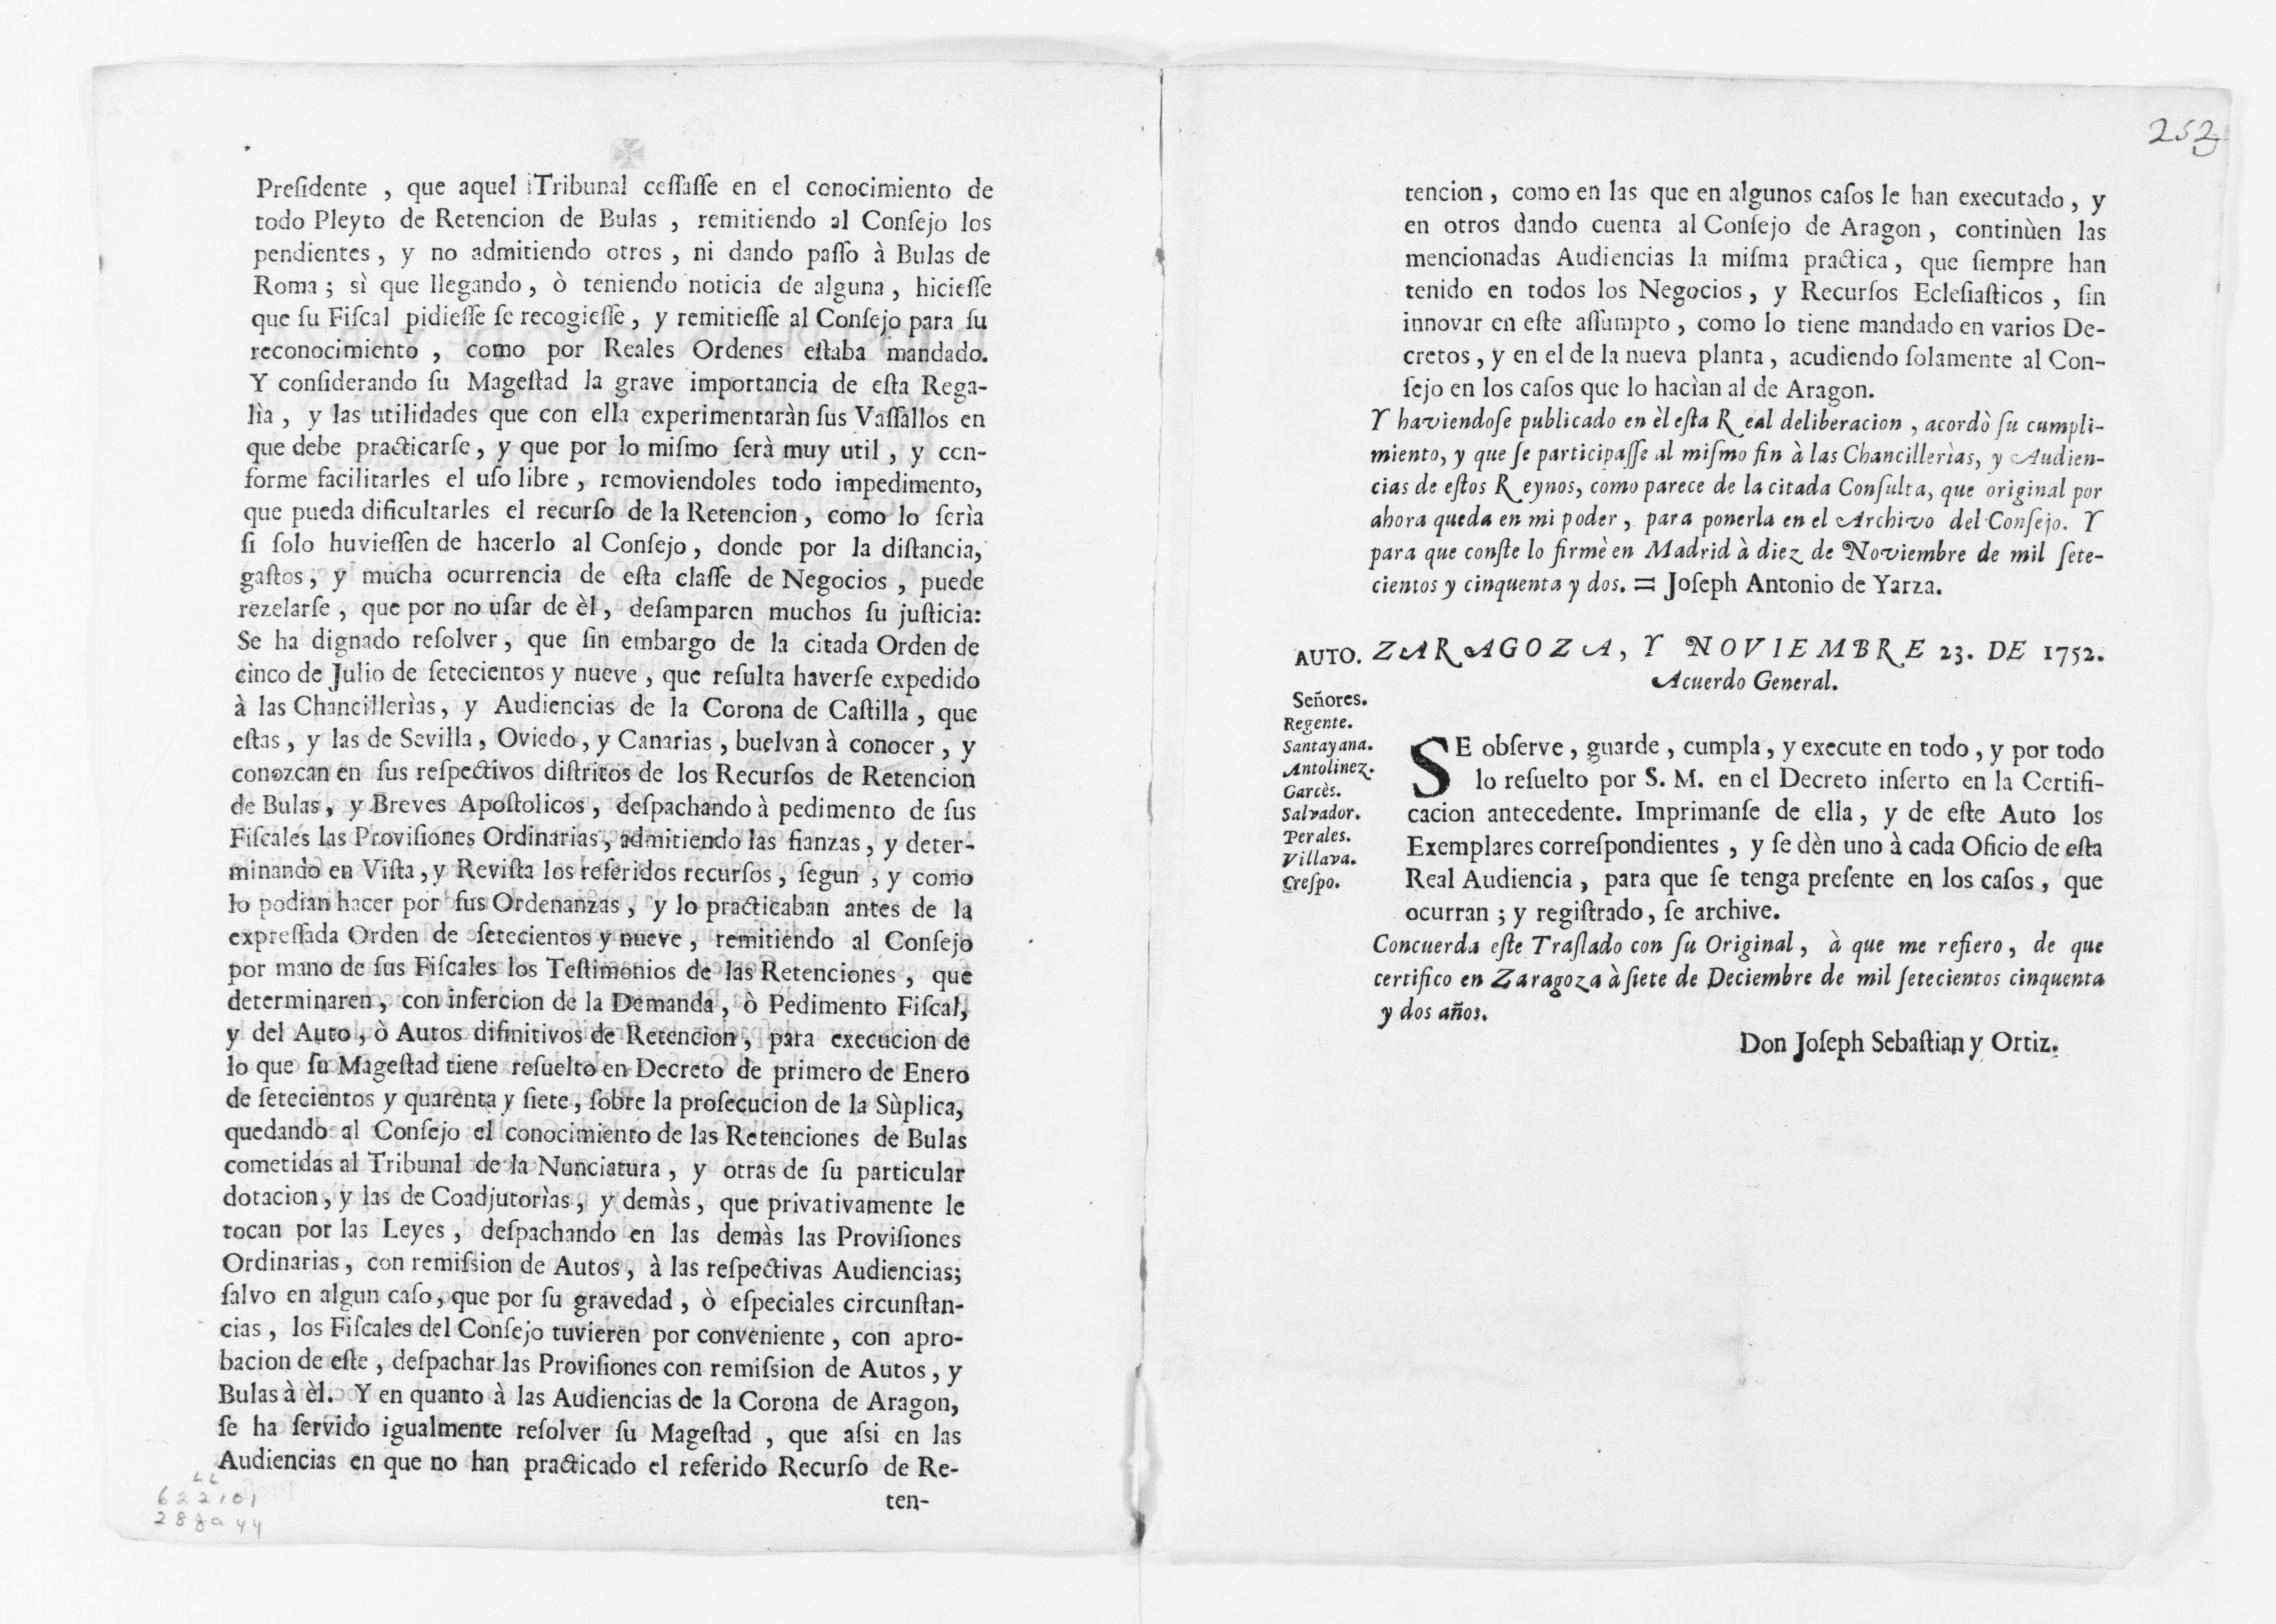 Preſidente , que aquel Tribunal ceſſaſſe en el conocimiento de
todo Pleyto de Retencion de Bulas , remitiendo al Conſejo los
pendientes , y no admitiendo otros , ni dando paſſo à Bulas de
Roma ; sì que llegando , ò teniendo noticia de alguna , hicieſſe
que ſu Fiſcal pidieſſe ſe recogieſſe , y remitieſſe al Conſejo para ſu
reconocimiento , como por Reales Ordenes eſtaba mandado.
Y conſiderando ſu Mageſtad la grave importancia de eſta Rega-
lìa , y las utilidades que con ella experimentaràn ſus Vaſſallos en
que debe practicarſe , y que por lo miſmo ſerà muy util , y con-
forme facilitarles el uſo libre , removiendoles todo impedimento,
que pueda dificultarles el recurſo de la Retencion , como lo ſerìa
ſi ſolo huvieſſen de hacerlo al Conſejo , donde por la diſtancia,
gaſtos , y mucha ocurrencia de eſta claſſe de Negocios , puede
rezelarſe , que por no uſar de èl , deſamparen muchos ſu juſticia:
Se ha dignado reſolver , que ſin embargo de la citada Orden de
cinco de Julio de ſetecientos y nueve , que reſulta haverſe expedido
à las Chancillerìas , y Audiencias de la Corona de Caſtilla , que
eſtas , y las de Sevilla , Oviedo , y Canarias , buelvan à conocer , y
conozcan en ſus reſpectivos diſtritos de los Recurſos de Retencion
de Bulas , y Breves Apoſtolicos , deſpachando à pedimento de ſus
Fiſcales las Proviſiones Ordinarias , admitiendo las fianzas , y deter-
minando en Viſta , y Reviſta los referidos recurſos , ſegun , y como
lo podian hacer por ſus Ordenanzas , y lo practicaban antes de la
expreſſada Orden de ſetecientos y nueve , remitiendo al Conſejo
por mano de ſus Fiſcales los Teſtimonios de las Retenciones , que
determinaren , con inſercion de la Demanda , ò Pedimento Fiſcal,
y del Auto , ò Autos difinitivos de Retencion , para execucion de
lo que ſu Mageſtad tiene reſuelto en Decreto de primero de Enero
de ſetecientos y quarenta y ſiete , ſobre la proſecucion de la Sùplica,
quedando al Conſejo el conocimiento de las Retenciones de Bulas
cometidas al Tribunal de la Nunciatura , y otras de ſu particular
dotacion , y las de Coadjutorìas , y demàs , que privativamente le
tocan por las Leyes , deſpachando en las demàs las Proviſiones
Ordinarias , con remiſsion de Autos , à las reſpectivas Audiencias;
ſalvo en algun caſo , que por ſu gravedad , ò eſpeciales circunſtan-
cias , los Fiſcales del Conſejo tuvieren por conveniente , con apro-
bacion de eſte , deſpachar las Proviſiones con remiſsion de Autos , y
Bulas à èl. Y en quanto à las Audiencias de la Corona de Aragon,
ſe ha ſervido igualmente reſolver ſu Mageſtad , que aſsi en las
Audiencias en que no han practicado el referido Recurſo de Re-
ten-
622101
28 8a 44
252
tencion , como en las que en algunos caſos le han executado , y
en otros dando cuenta al Conſejo de Aragon , continùen las
mencionadas Audiencias la miſma practica , que ſiempre han
tenido en todos los Negocios , y Recurſos Ecleſiaſticos , ſin
innovar en eſte aſſumpto , como lo tiene mandado en varios De-
cretos , y en el de la nueva planta , acudiendo ſolamente al Con-
ſejo en los caſos que lo hacìan al de Aragon.
Y haviendoſe publicado en èl eſta Real deliberacion , acordò ſu cumpli-
miento, y que ſe participaſſe al miſmo fin à las Chancillerìas, y Audien-
cias de eſtos Reynos, como parece de la citada Conſulta, que original por
ahora queda en mi poder , para ponerla en el Archivo del Conſejo. Y
para que conſte lo firmè en Madrid à diez de Noviembre de mil ſete-
cientos y cinquenta y dos. = Joſeph Antonio de Yarza.
AUTO. ZARAGOZA, Y NOVIEMBRE 23. DE 1752.
Acuerdo General.
Señores.
Regente.
Santayana.
Antolinez.
Garcès.
Salvador.
Perales.
Villava.
Creſpo.
SE obſerve , guarde , cumpla , y execute en todo , y por todo
lo reſuelto por S. M. en el Decreto inſerto en la Certifi-
cacion antecedente. Imprimanſe de ella , y de eſte Auto los
Exemplares correſpondientes , y ſe dèn uno à cada Oficio de eſta
Real Audiencia , para que ſe tenga preſente en los caſos , que
ocurran ; y regiſtrado , ſe archive.
Concuerda eſte Traſlado con ſu Original , à que me refiero , de que
certifico en Zaragoza à ſiete de Deciembre de mil ſetecientos cinquenta
y dos años.
Don Joſeph Sebaſtian y Ortiz.